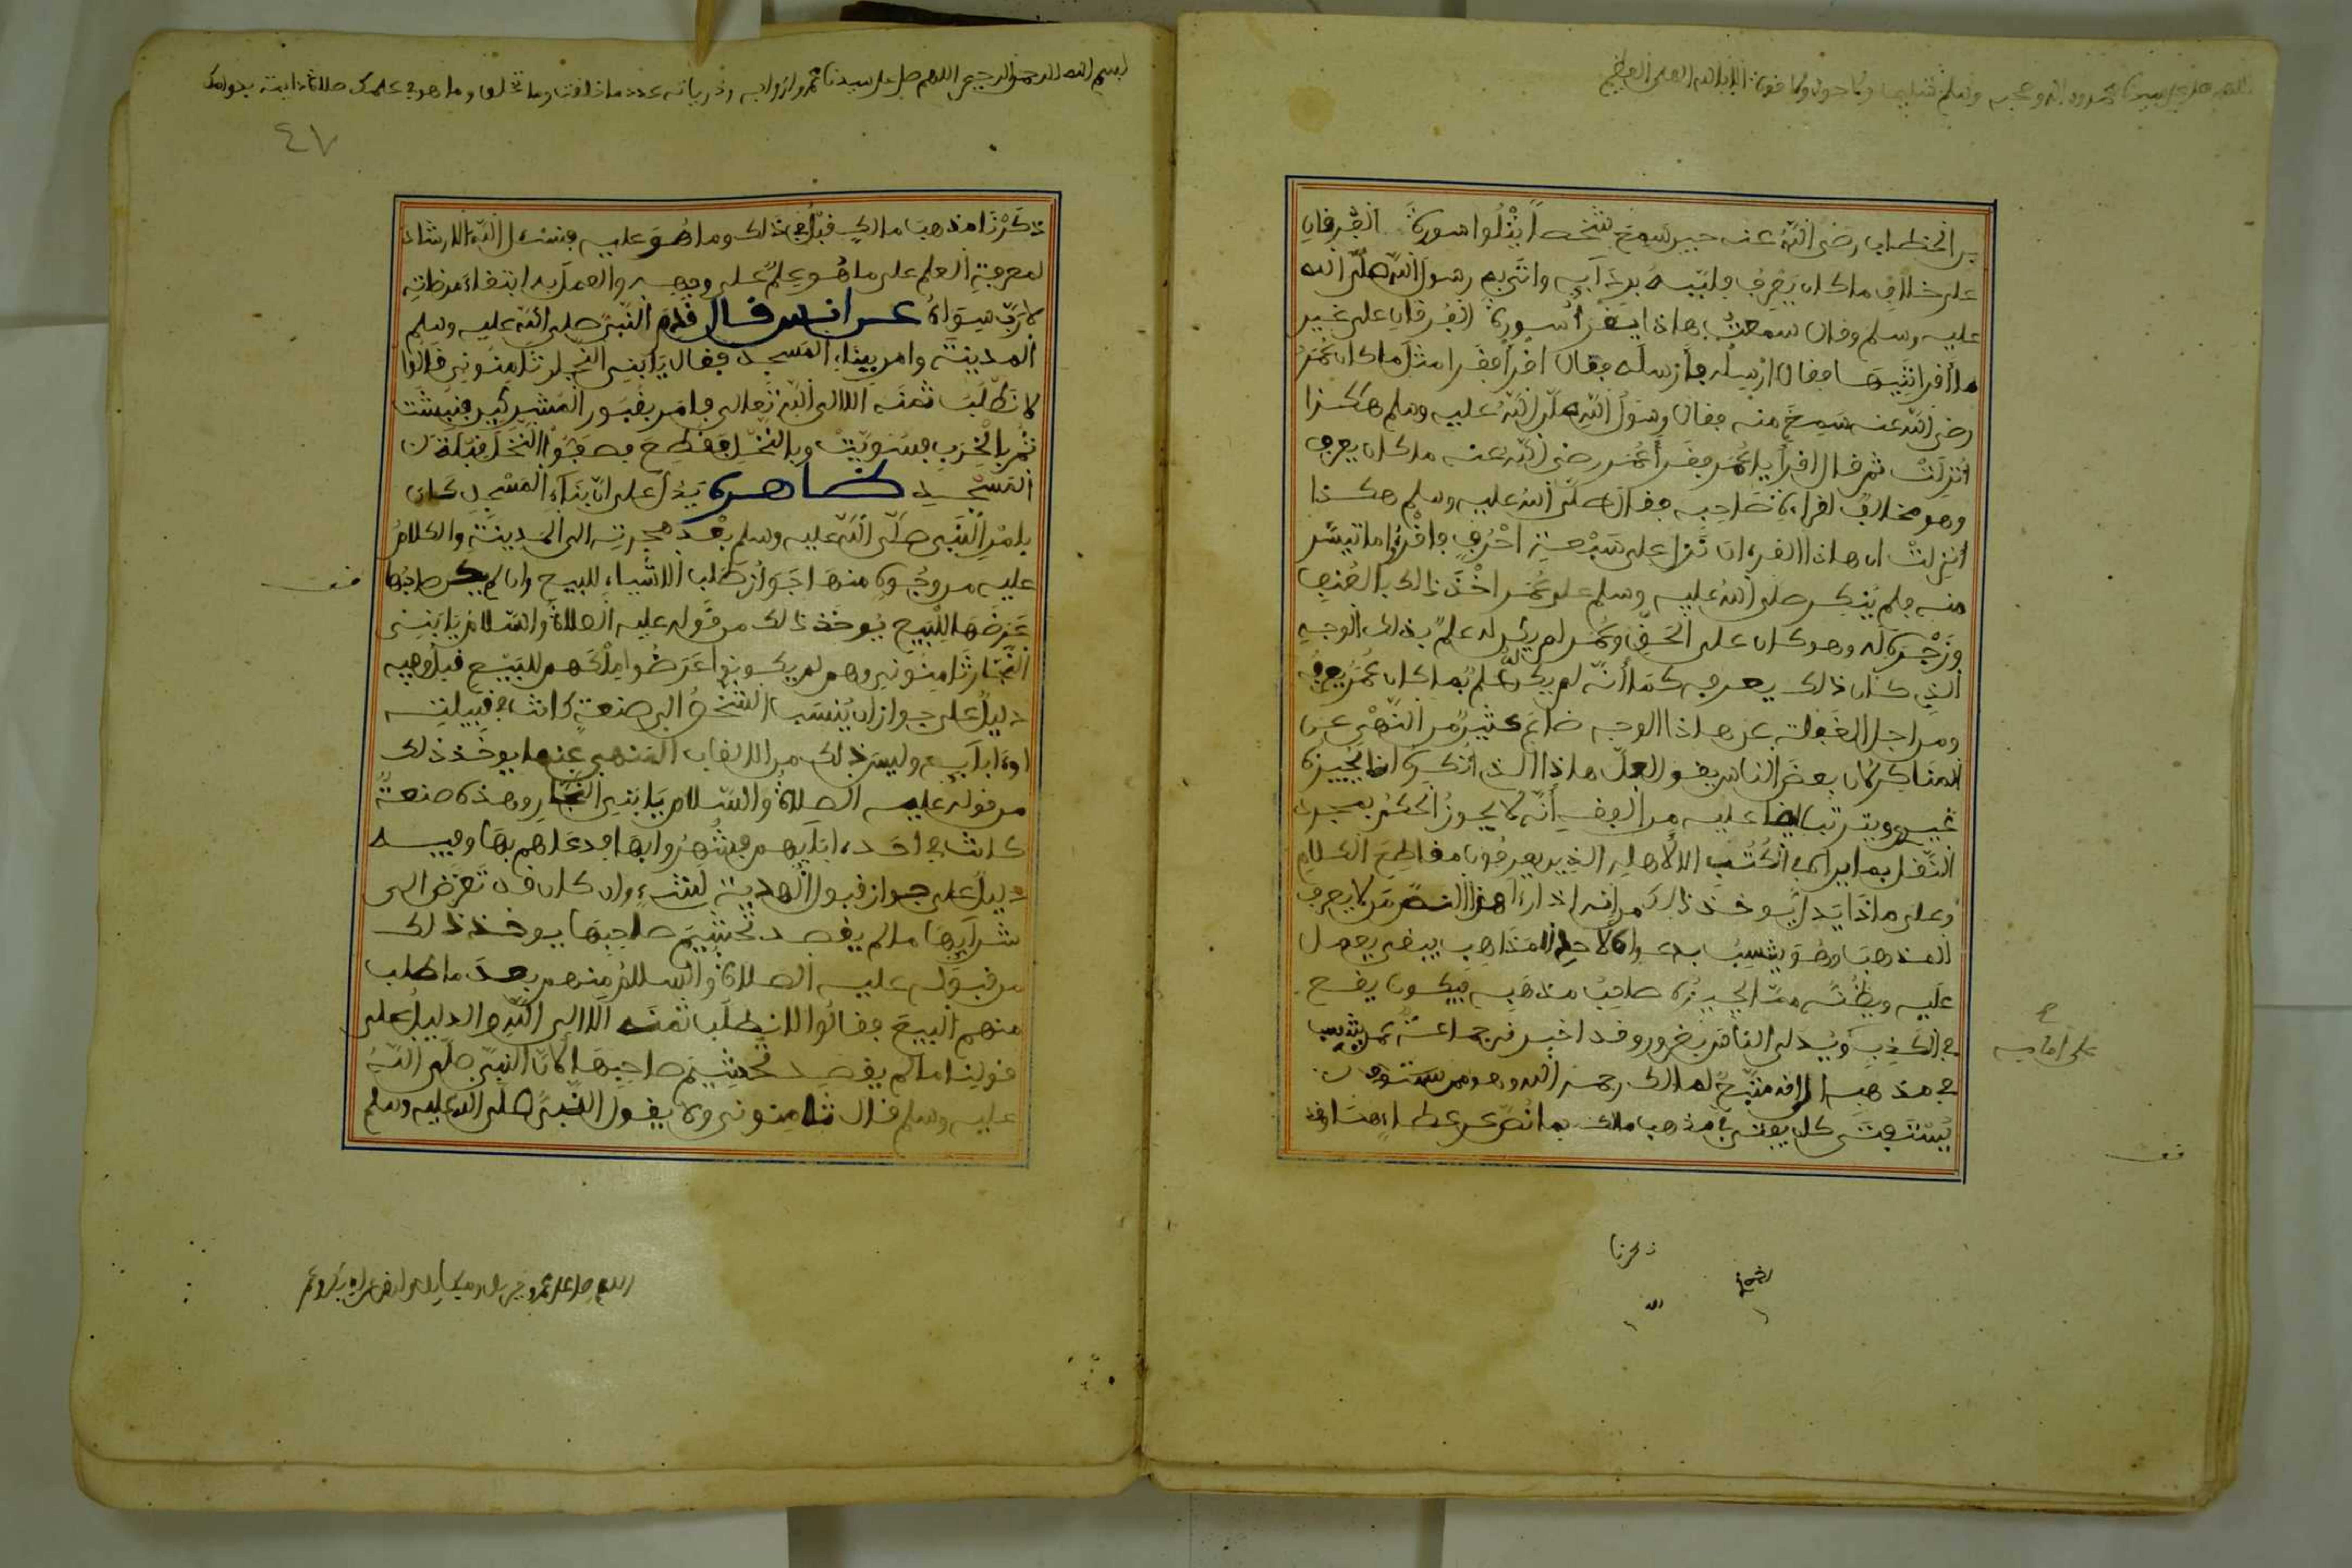 اللهم صل على سيدنا محمد وءاله وصحبه وسلم تسليما ولا حول ولا قوة الا بالله العلي العظيم
بن الخطاب رضي الله عنه حين سمع شخصا يتلوا سورة الفرقان
على خلاف ما كان يعرف فلببه بردآيه واتى به رسول الله صلى الله
عليه وسلم وقال سمعت هاذا يقرأ سورة الفرقان على غير
ما أقرأتنيها فقال ارسله فأرسله فقال اقرأ فقرا مثل ما كان عمر
رضي الله عنه سمع منه فقال رسول الله صلى الله عليه وسلم هكذا
أنزلت ثم قال اقرأ يا عمر فقرأ عمر رضي الله عنه ما كان يعرف
وهو مخالف لقراءة صاحبه فقال صلى الله عليه وسلم هكذا
أنزلت ان هاذا القرءان نزل على سبعة احرف فاقرءوا ما تيسر
منه فلم ينكر صلى الله عليه وسلم على عمر اخذ ذالك بالعنف
وزجره له وهو كان على الحق وعمر لم يكن له علم بذلك الوجه
الذي كان ذالك يعرفه كما أنه لم يكن له علم بما كان عمر يعرفه
ومن اجل الغفلة عن هاذا الوجه ضاع كثير من النهي عن
المناكر لان بعض الناس يقول لعل هاذا الذي أنكره انا يجيزه
غيري ويترتب ايضا عليه من الفقه أنه لا يجوز الحكم بمجرد
النقل بما يرا في الكتب الا لأهله الذين يعرفون مقاطع الكلام
وعلى ماذا يدل يوخذ ذالك من انه اذا رءا هذا النص من لا يعرف
المذهب وهو ينسب بدعواه لاحد المذاهب يبقى يعمل
عليه ويظن مما يجيزه صاحب مذهبه فيكون يقع
في الكذب ويدلى الناس بغرور وقد اخبر في جماعة ممن ينسب
في مذهبه الى انه متبع لمالك رحمه الله وهو ممن
يستفتى كان يفتي في مذهب مالك بما نص عن عطاء هنا وقد
ذكرنا
بسم الله الرحمن الرحيم اللهم صل على سيدنا محمد وازواجه وذرياته عدد ما خلقت وما تخلق وما هو في علمك صلاة دايمة بدوامك
٤٧
ذكرنا مذهب مالك قبل في ذلك وما هو عليه فنسئل الله الارشاد
لمعرفة العلم على ما هو علم على وجهه والعمل به ابتغاء مرضاته
لا رب سواه عن انس قال قدم النبي صلى الله عليه وسلم
المدينة وامر ببناء المسجد فقال يا بني النجار ثامنوني قالوا
لا نطلب ثمنه الا الى الله تعالى فامر بقبور المشركين فنبشت
ثم بالخرب فسويت وبالنخل فقطع فصفوا النخل قبلة
المسجد ظاهره يدل على ان بناء المسجد كان
بامر النبي صلى الله عليه وسلم بعد هجرته الى المدينة والكلام
عليه من وجوه منها جواز طلب الاشياء للبيع وان لم يكن صاحبها
عرضها للبيع يوخذ ذالك من قوله عليه الصلاة والسلام يا بني
النجار ثامنوني وهم لم يكونوا عرضوا ملكهم للبيع قبل وفيه
دليل على جواز ان ينسب الشخص الى صنعة كانت في قبيلته
او في ابآيه وليس ذلك من الالقاب المنهي عنها يوخذ ذلك
من قوله عليه الصلاة والسلام يا بني النجار وهذه صنعة
كانت في احد ءابآيهم فشهروا بها فدعاهم بها وفيه
دليل على جواز قبول الهدية لشيء وان كان قد تعرض الى
شرآيها ما لم يقصد تحشيم صاحبها يوخذ ذالك
من قبوله عليه الصلاة والسلام منهم بعد ما طلب
منهم البيع فقالوا لا نطلب ثمنه الا الى الله والدليل على
قولنا ما لم يقصد تحشيم صاحبها لان النبي صلى الله
عليه وسلم قال ثامنوني ولا يقول النبي صلى الله عليه وسلم